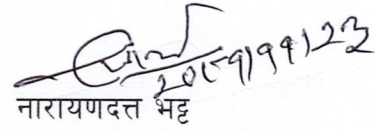 २०८१/११/२३
नारायणदत्त भट्ट